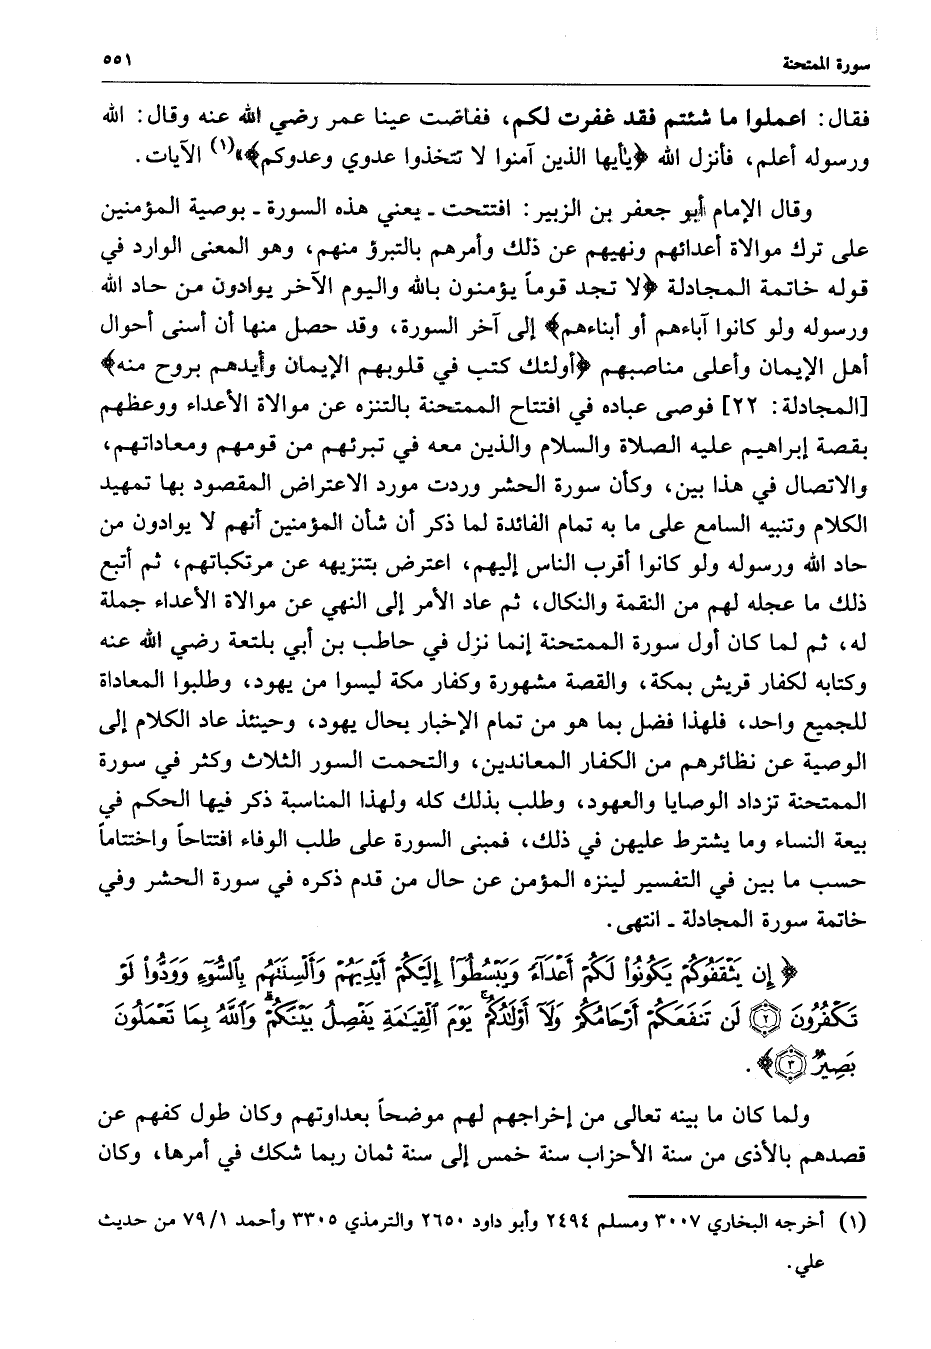 سورة الممتحنة ٥٥١
فقال: اعملوا ما شئتم فقد غفرت لكم، ففاضت عينا عمر رضي الله عنه وقال: الله
ورسوله أعلم، فأنزل الله ﴿يأيها الذين آمنوا لا تتخذوا عدوي وعدوكم﴾»(١) الآيات.
وقال الإمام أبو جعفر بن الزبير: افتتحت ـ يعني هذه السورة ـ بوصية المؤمنين
على ترك موالاة أعدائهم ونهيهم عن ذلك وأمرهم بالتبرؤ منهم، وهو المعنى الوارد في
قوله خاتمة المجادلة ﴿لا تجد قوماً يؤمنون بالله واليوم الآخر يوادون من حاد الله
ورسوله ولو كانوا آباءهم أو أبناءهم﴾ إلى آخر السورة، وقد حصل منها أن أسنى أحوال
أهل الإيمان وأعلى مناصبهم ﴿أولئك كتب في قلوبهم الإيمان وأيدهم بروح منه﴾
[المجادلة: ٢٢] فوصى عباده في افتتاح الممتحنة بالتنزه عن موالاة الأعداء ووعظهم
بقصة إبراهيم عليه الصلاة والسلام والذين معه في تبرئهم من قومهم ومعاداتهم،
والاتصال في هذا بين، وكأن سورة الحشر وردت مورد الاعتراض المقصود بها تمهيد
الكلام وتنبيه السامع على ما به تمام الفائدة لما ذكر أن شأن المؤمنين أنهم لا يوادون من
حاد الله ورسوله ولو كانوا أقرب الناس إليهم، اعترض بتنزيهه عن مرتكباتهم، ثم أتبع
ذلك ما عجله لهم من النقمة والنكال، ثم عاد الأمر إلى النهي عن موالاة الأعداء جملة
له، ثم لما كان أول سورة الممتحنة إنما نزل في حاطب بن أبي بلتعة رضي الله عنه
وكتابه لكفار قريش بمكة، والقصة مشهورة وكفار مكة ليسوا من يهود، وطلبوا المعاداة
للجميع واحد، فلهذا فضل بما هو من تمام الإخبار بحال يهود، وحينئذ عاد الكلام إلى
الوصية عن نظائرهم من الكفار المعاندين، والتحمت السور الثلاث وكثر في سورة
الممتحنة تزداد الوصايا والعهود، وطلب بذلك كله ولهذا المناسبة ذكر فيها الحكم في
بيعة النساء وما يشترط عليهن في ذلك، فمبنى السورة على طلب الوفاء افتتاحاً واختتاماً
حسب ما بين في التفسير لينزه المؤمن عن حال من قدم ذكره في سورة الحشر وفي
خاتمة سورة المجادلة ـ انتهى.
﴿إِن يَثْقَفُوكُمْ يَكُونُوا۟ لَكُمْ أَعْدَآءً وَيَبْسُطُوٓا۟ إِلَيْكُمْ أَيْدِيَهُمْ وَأَلْسِنَتَهُم بِٱلسُّوٓءِ وَوَدُّوا۟ لَوْ
تَكْفُرُونَ ﴿٢﴾ لَن تَنفَعَكُمْ أَرْحَامُكُمْ وَلَآ أَوْلَـٰدُكُمْ ۚ يَوْمَ ٱلْقِيَـٰمَةِ يَفْصِلُ بَيْنَكُمْ ۚ وَٱللَّهُ بِمَا تَعْمَلُونَ
بَصِيرٌ ﴿٣﴾﴾.
ولما كان ما بينه تعالى من إخراجهم لهم موضحاً بعداوتهم وكان طول كفهم عن
قصدهم بالأذى من سنة الأحزاب سنة خمس إلى سنة ثمان ربما شكك في أمرها، وكان
(١) أخرجه البخاري ٣٠٠٧ ومسلم ٢٤٩٤ وأبو داود ٢٦٥٠ والترمذي ٣٣٠٥ وأحمد ١/ ٧٩ من حديث
علي.